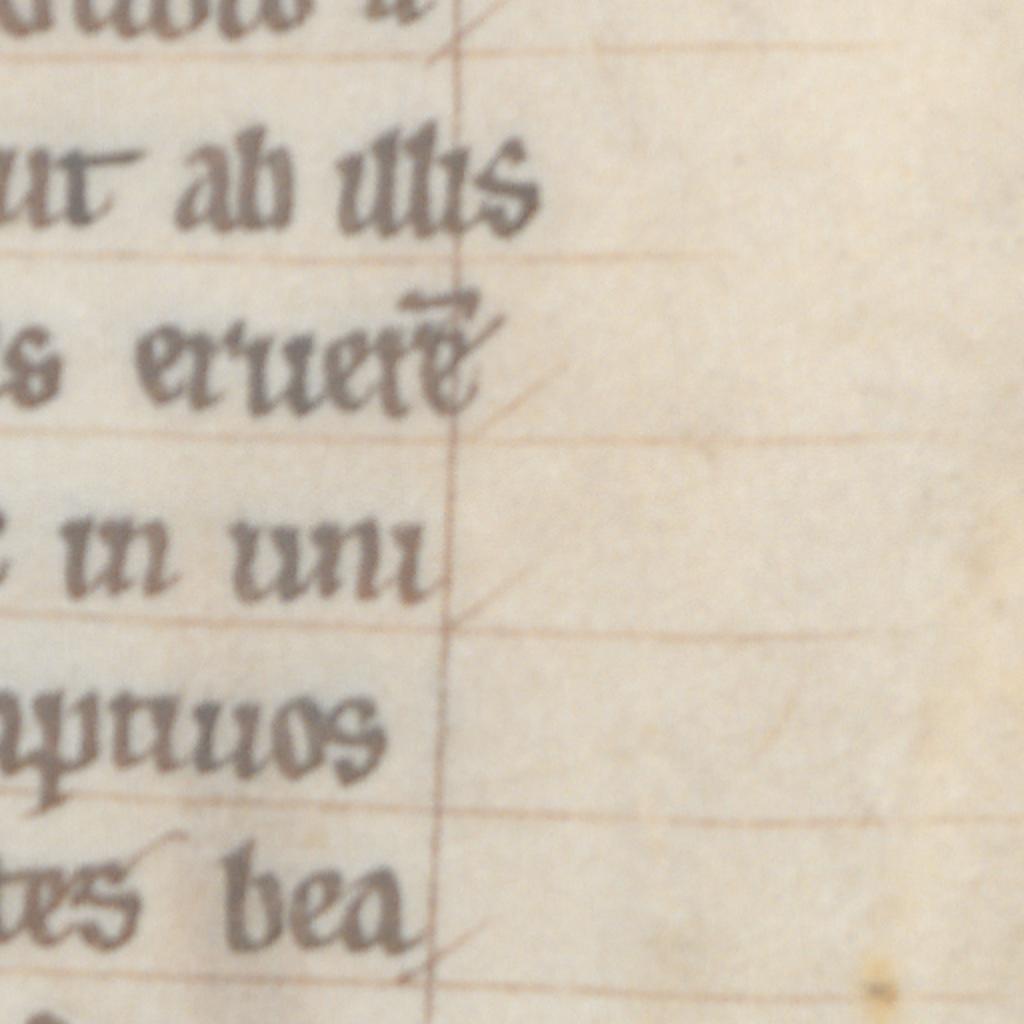 ut ab illis
s eruerē
in uni
ptiuos
tes bea